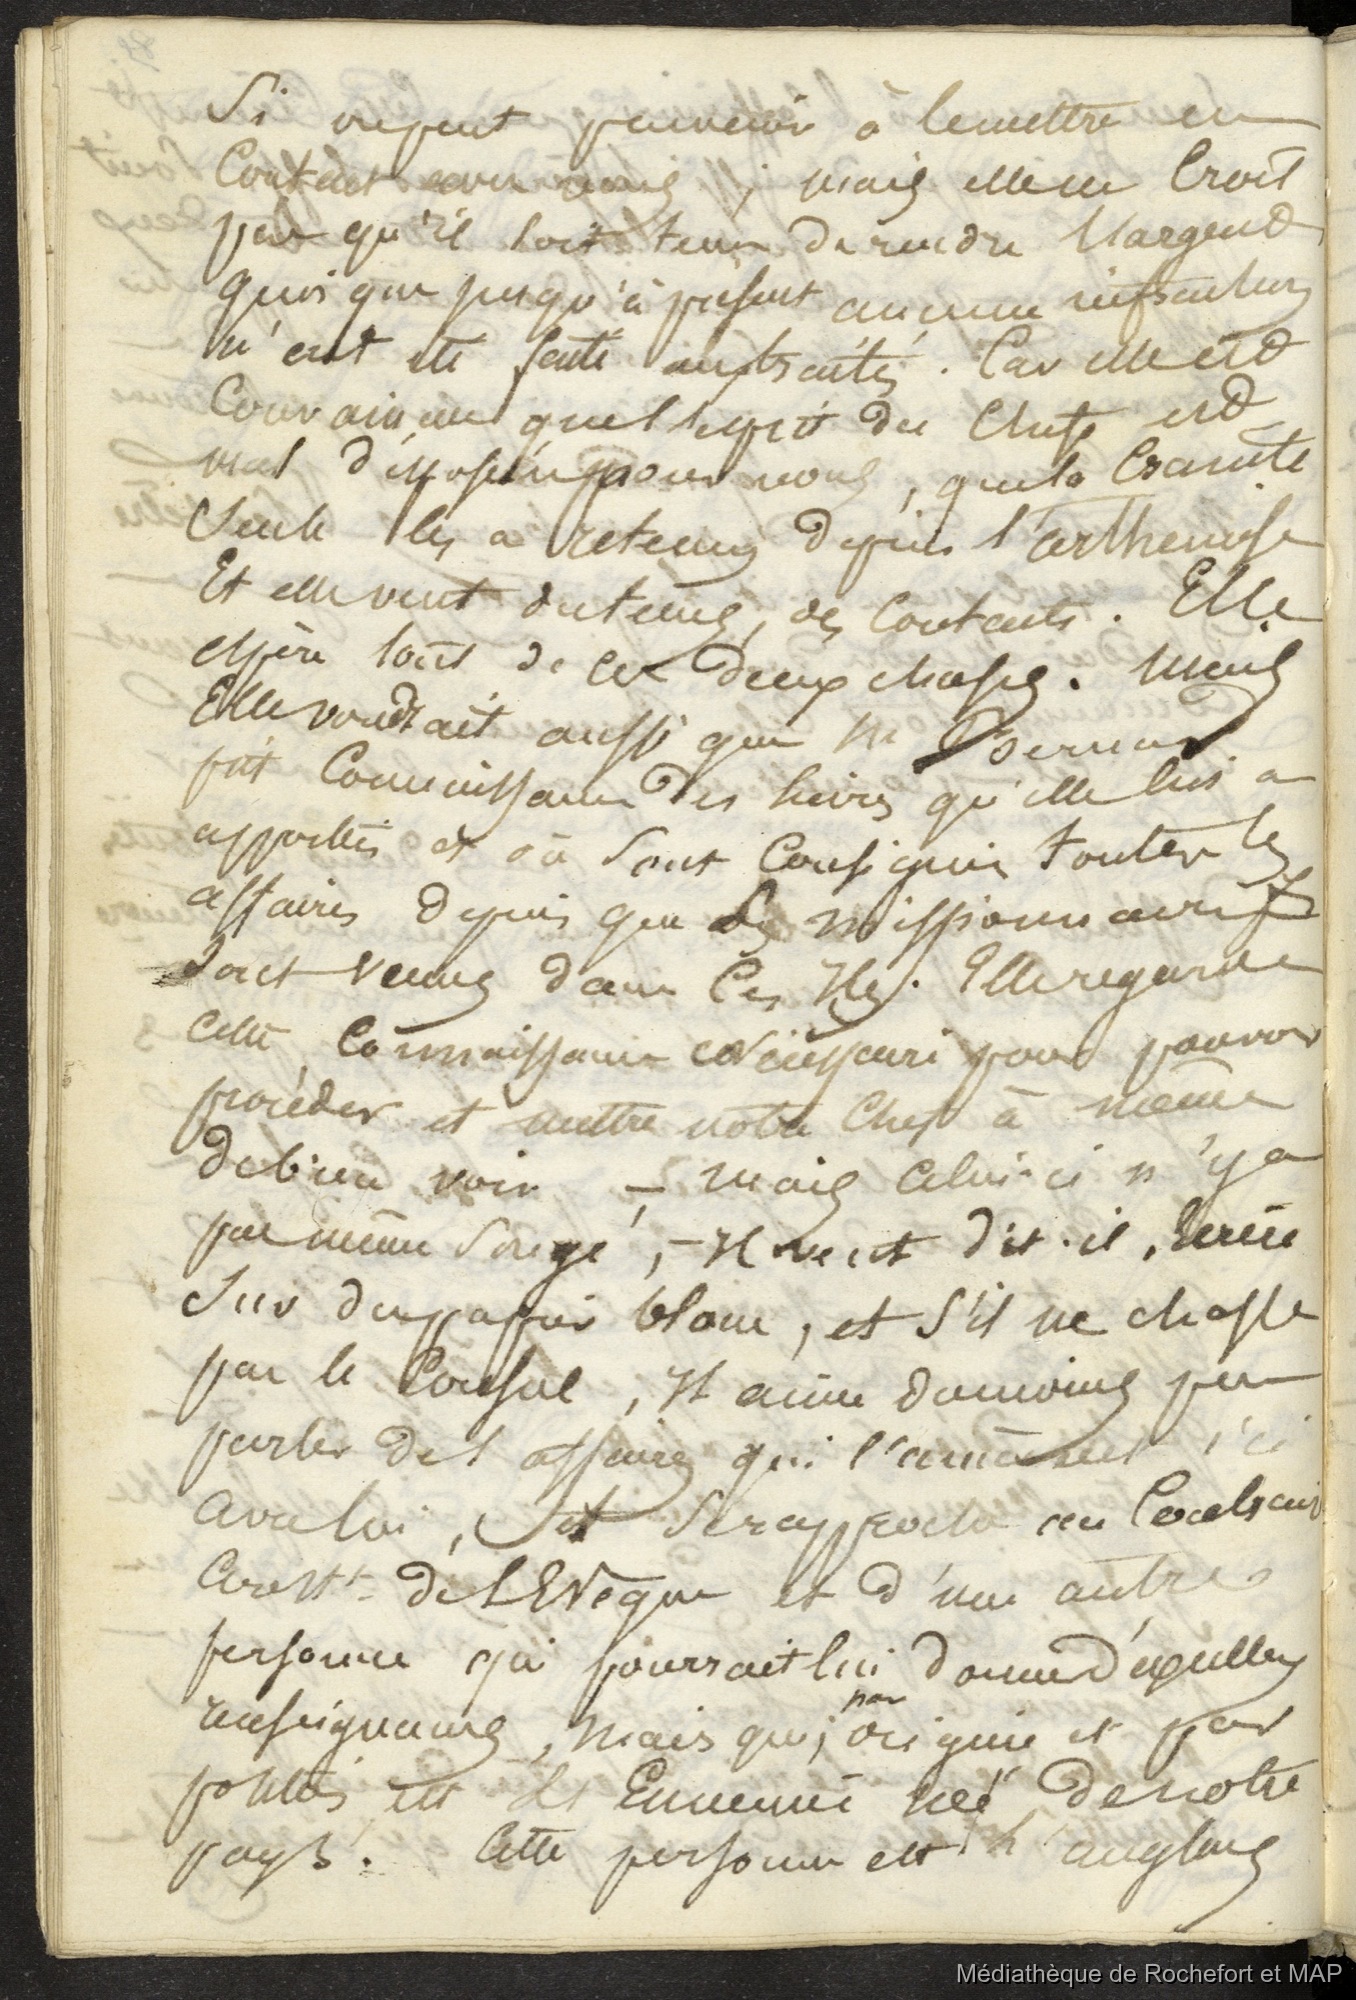 Si on peut parvenir à le mettre en
Contact avec nous ; mais elle ne Croit
pas qu'il soit tenu de rendre l'argent
quoique jusqu'à présent aucune infraction
n'ait été faite aux traités. Car elle est
Convaincue que l'esprit des Chefs est
mal disposé pour nous, que la Crainte
Seule les a retenus depuis l'arthemise
Et elle veut du tems, des Contacts. Elle
espère tout de ces deux choses. Mais
Elle voudrait aussi que M
prit Connaissance des livres qu'elle lui a
apportés et où Sont Consignées toutes les
affaires depuis que les Missionnaires
Sont venus dans Ces Iles. Elle regarde
Cette Connaissance nécessaire pour pouvoir
procéder et mettre notre Chef à même
de bien voir – mais Celui-ci n'y a
pas même Songé, – Il veut dit-il, Ecrire
Sur du papier blanc, et S'il ne chasse
pas le Consul, Il aime du moins peu
parler des affaires qui l'amènent ici
avec lui, et Se rapproche au Contraire
de l'Evêque et d'une autre
personne qui pourrait lui donner d'exellens
renseignemens, Mais qui, par origine et par
est Ennemi né de notre
pays. Cette personne est l'anglais